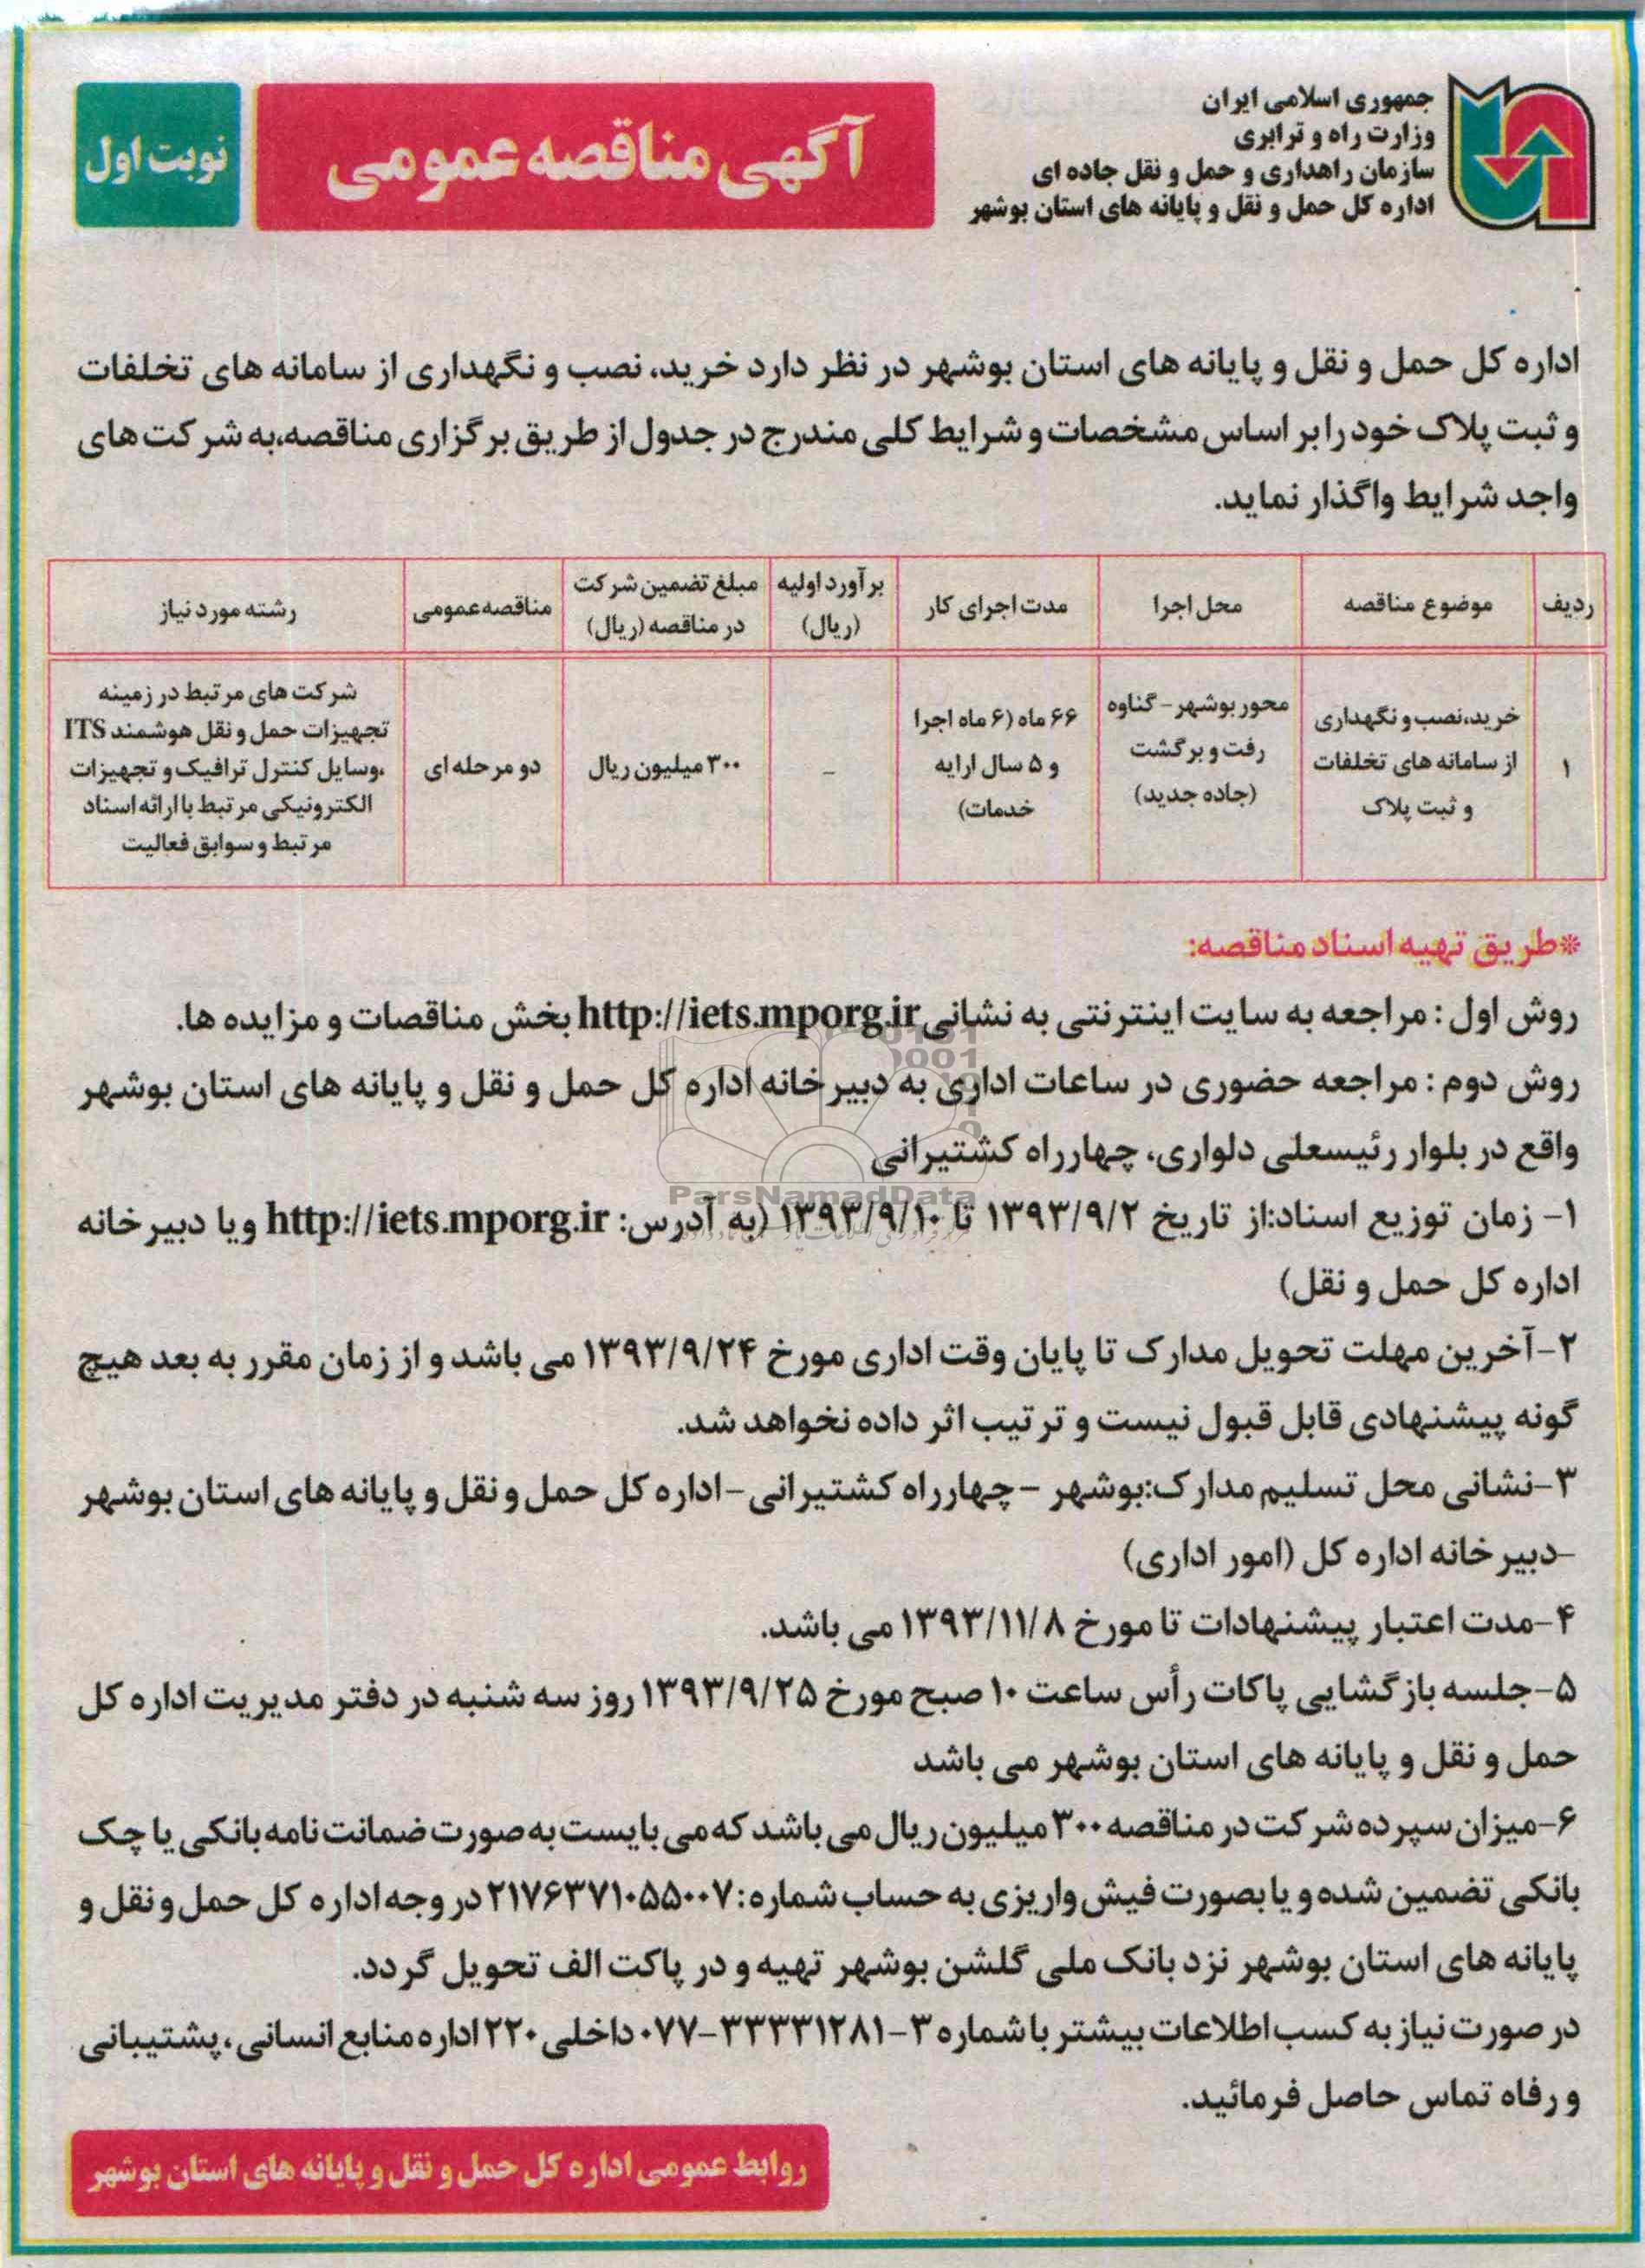 جمهوری اسلامی ایران
وزارت راه و ترابری
سازمان راهداری و حمل و نقل جاده ای
اداره کل حمل و نقل و پایانه های استان بوشهر
آگهی مناقصه عمومی
نوبت اول
اداره کل حمل و نقل و پایانه های استان بوشهر در نظر دارد خرید، نصب و نگهداری از سامانه های تخلفات
و ثبت پلاک خود را بر اساس مشخصات و شرایط کلی مندرج در جدول از طریق برگزاری مناقصه،به شرکت های
واجد شرایط واگذار نماید.
ردیف
موضوع مناقصه
محل اجرا
مدت اجرای کار
برآورد اولیه
(ریال)
مبلغ تضمین شرکت
در مناقصه (ریال)
مناقصه عمومی
رشته مورد نیاز
۱
خرید،نصب و نگهداری
از سامانه های تخلفات
و ثبت پلاک
محور بوشهر - گناوه
رفت و برگشت
(جاده جدید)
۶۶ ماه (۶ ماه اجرا
و ۵ سال ارایه
خدمات)
-
۳۰۰ میلیون ریال
دو مرحله ای
شرکت های مرتبط در زمینه
تجهیزات حمل و نقل هوشمند ITS
،وسایل کنترل ترافیک و تجهیزات
الکترونیکی مرتبط با ارائه اسناد
مرتبط و سوابق فعالیت
*طریق تهیه اسناد مناقصه:
روش اول : مراجعه به سایت اینترنتی به نشانی http://iets.mporg.ir بخش مناقصات و مزایده ها.
روش دوم : مراجعه حضوری در ساعات اداری به دبیرخانه اداره کل حمل و نقل و پایانه های استان بوشهر
واقع در بلوار رئیسعلی دلواری، چهارراه کشتیرانی
ParsNamadData
۱- زمان توزیع اسناد:از تاریخ ۱۳۹۳/۹/۲ تا ۱۳۹۳/۹/۱۰ (به آدرس: http://iets.mporg.ir ویا دبیرخانه
اداره کل حمل و نقل)
۲-آخرین مهلت تحویل مدارک تا پایان وقت اداری مورخ ۱۳۹۳/۹/۲۴ می باشد و از زمان مقرر به بعد هیچ
گونه پیشنهادی قابل قبول نیست و ترتیب اثر داده نخواهد شد.
۳-نشانی محل تسلیم مدارک:بوشهر -چهارراه کشتیرانی-اداره کل حمل و نقل و پایانه های استان بوشهر
-دبیرخانه اداره کل (امور اداری)
۴-مدت اعتبار پیشنهادات تا مورخ ۱۳۹۳/۱۱/۸ می باشد.
۵-جلسه بازگشایی پاکات رأس ساعت ۱۰ صبح مورخ ۱۳۹۳/۹/۲۵ روز سه شنبه در دفتر مدیریت اداره کل
حمل و نقل و پایانه های استان بوشهر می باشد
۶-میزان سپرده شرکت در مناقصه ۳۰۰ میلیون ریال می باشد که می بایست به صورت ضمانت نامه بانکی یا چک
بانکی تضمین شده و یا بصورت فیش واریزی به حساب شماره: ۲۱۷۶۳۷۱۰۵۵۰۰۷ در وجه اداره کل حمل و نقل و
پایانه های استان بوشهر نزد بانک ملی گلشن بوشهر تهیه و در پاکت الف تحویل گردد.
در صورت نیاز به کسب اطلاعات بیشتر با شماره ۳-۳۳۳۳۱۲۸۱-۰۷۷ داخلی ۲۲۰ اداره منابع انسانی ، پشتیبانی
و رفاه تماس حاصل فرمائید.
روابط عمومی اداره کل حمل و نقل و پایانه های استان بوشهر